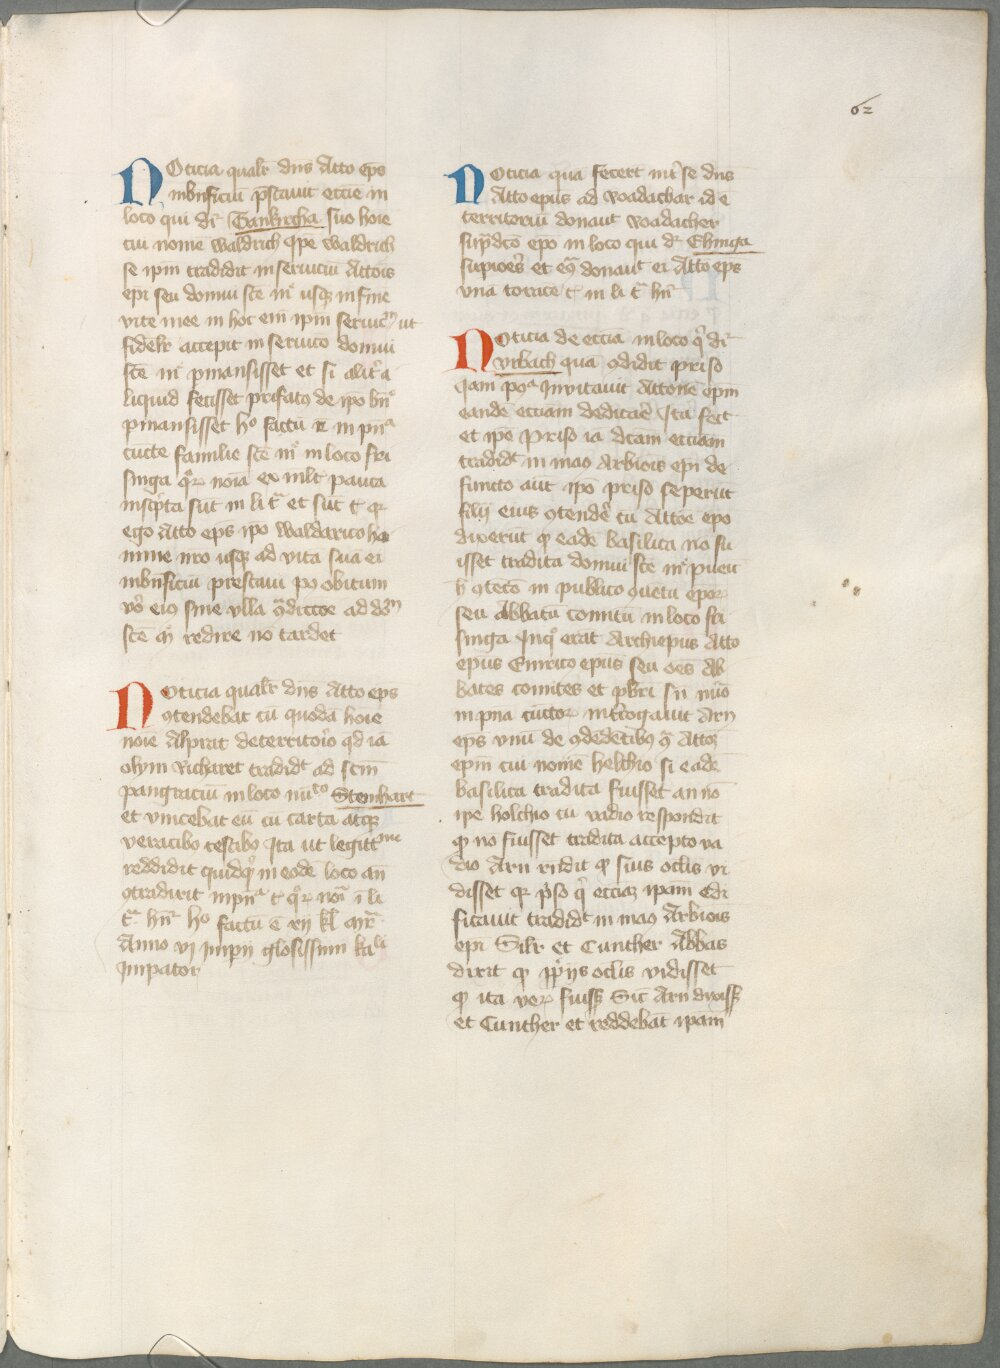 62
Noticia qualr̄ dn̄s Atto ep̄s
inbn̄ficiū p̄stauit eccīe in
loco qui dr̄ Tankircha suo hoīe
cui nome Waldrich qͥpe Waldrich
se ip̄m tradidit in seruiciū Attoīs
ep̄i seu domui sc̄e mͬ usqꝫ in fine
vite mee in hoc em̄ ip̄m seruic ut
fidelr̄ accepit in seruico domui
sc̄e mͬ p̄mansisset et si alitͬ a
liquid fecisset prifatꝯ de ip̄o bn̄ͦ
pmansisset hͦ factū ē in pn̄ᵃ
cūcte familie sc̄e mͬ in loco fri
singa qͦꝝ noīa ex ml̄t pauca
inscͥpta sūt in li tͬ et sūt t qꝫ
ego Atto ep̄s ip̄o Waldarico ho
mine nr̄o usqꝫ ad vita suā ei
inbn̄ficiū prestaui po obitum
vͦo eiꝯ sine ulla ꝯ̄dictōe ad dōᵐ
sc̄e mͬ redire nō tardet
Noticia qualr̄ dn̄s Atto ep̄s
ꝯtendebat cū quodā hoīe
noīe Alprat de territoͥo qd̄ iā
olym Richaret tradidᵗ ad sc̄m
pangraciū in loco nūᵗᵒ Steinhart
et vincebat eū cū carta atqꝫ
veracibꝯ testibꝯ Ita ut legittᵐᵉ
reddidit quidqͥ in eodē loco an̄
ꝯtradixit inpn̄ᵃ t qͦꝝ noī ī li
tͬ hn̄ͬ hͦ factū ē xij kl̄ apr̄
Anno vj impij gl̄osissimi kaˡⁱ
Impator
Noticia qua fecert̄ intͬ se dn̄s
Atto epūs ad Woadachar id ē
territoriū donaut̄ Woadacher
sup̄dc̄o ep̄o in loco qui dr̄ Ehinga
supioēs et eꝯͣ donaut̄ ei Atto ep̄s
unā torace t in li tͬ hn̄ͬ
Noticia de eccīa in loco qͥ dr̄
Vrbach quā ꝯdidit priso
Qam poꝯᵃ Inuitauit Attonē ep̄m
eandē eccīam dedicaē Ita fecīt
et ip̄e Priso iā dc̄am eccīam
tradidᵗ in manꝯ Arbiōis ep̄i de
functo aut̄ ip̄o priso ceperūt
filij eius ꝯtendē cū Attoē ep̄o
dixerūt ꝙ eadē basilica nō fu
isset tradita domui sc̄e mͬ pueū
h ꝯtētō in publico ꝯuētu ep̄oꝝ
seu Abbatū comitū in loco fri
singa Inqͦ erat Archiepūs Atto
epūs Einrico epūs seu oēs Ab
bates comites et pb̄ri sn̄ nūo
in pn̄a cūctoꝝ intͬrogauit Arn
ep̄s vnū de ꝯdedētibꝯ qͣ Attoꝫ
ep̄m cui nome helchio si eadē
basilica tradita fuisset an nō
ip̄e holchio cū vadio respondit
ꝙ nō fuisset tradita accepto va
dio Arn rn̄dit ꝙ suis oclīs vi
disset qꝫ p̄so qͥ eccīaꝫ ip̄am edi
ficauit tradidᵗ in manꝯ Arbiōis
ep̄i Silr̄ et Cunther Abbas
dixit ꝙ p̄pijs oclīs vidisset
ꝙ ita veꝝ fuissꝫ Sic Arn dixissꝫ
et Cunther et reddebāt ip̄am